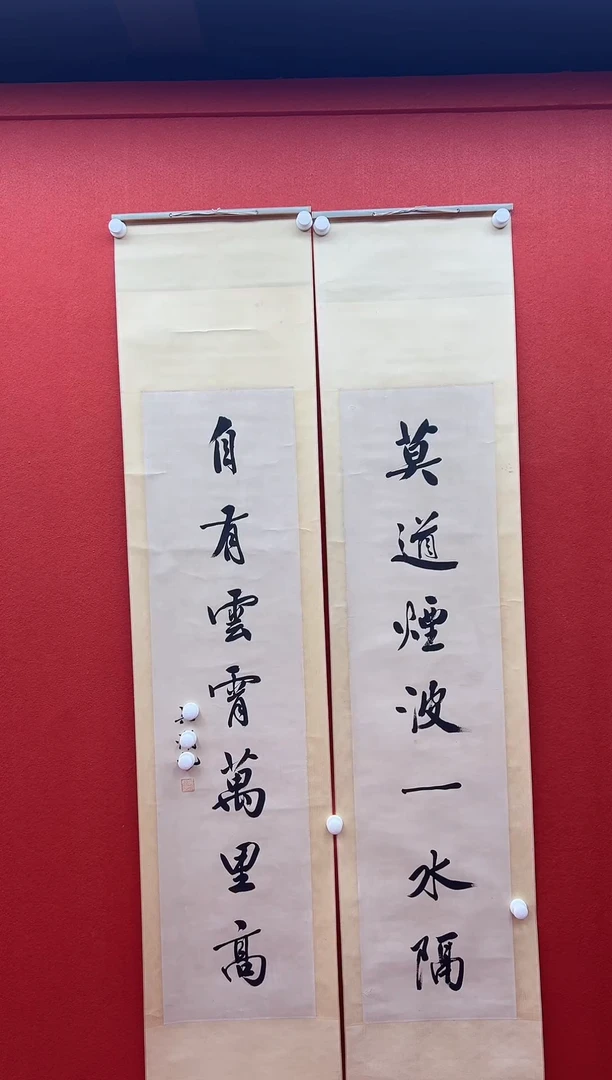 莫道煙波一水隔
自有雲霄萬里高